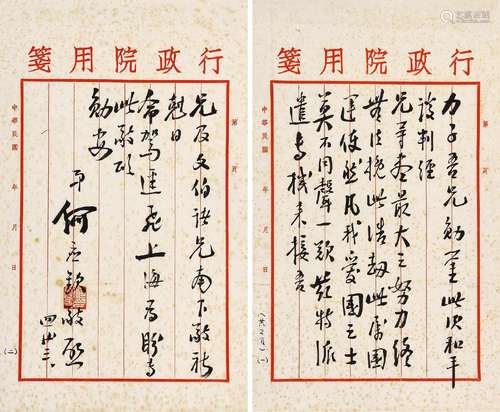 行政院用箋
第 頁
力子吾兄勛鑒此次和平
談判經
兄等盡最大之努力終
無法挽此浩劫此為國
運使然凡我愛國之士
莫不同聲一嘆茲特派
遣專機來接吾
中華民國 年 月 日
(一)
行政院用箋
第 頁
兄及文伯諸兄南下敬祈
尅日
命駕逕飛上海為盼專
此敬頌
勛安
弟何應欽敬啟
四廿三
中華民國 年 月 日
(二)